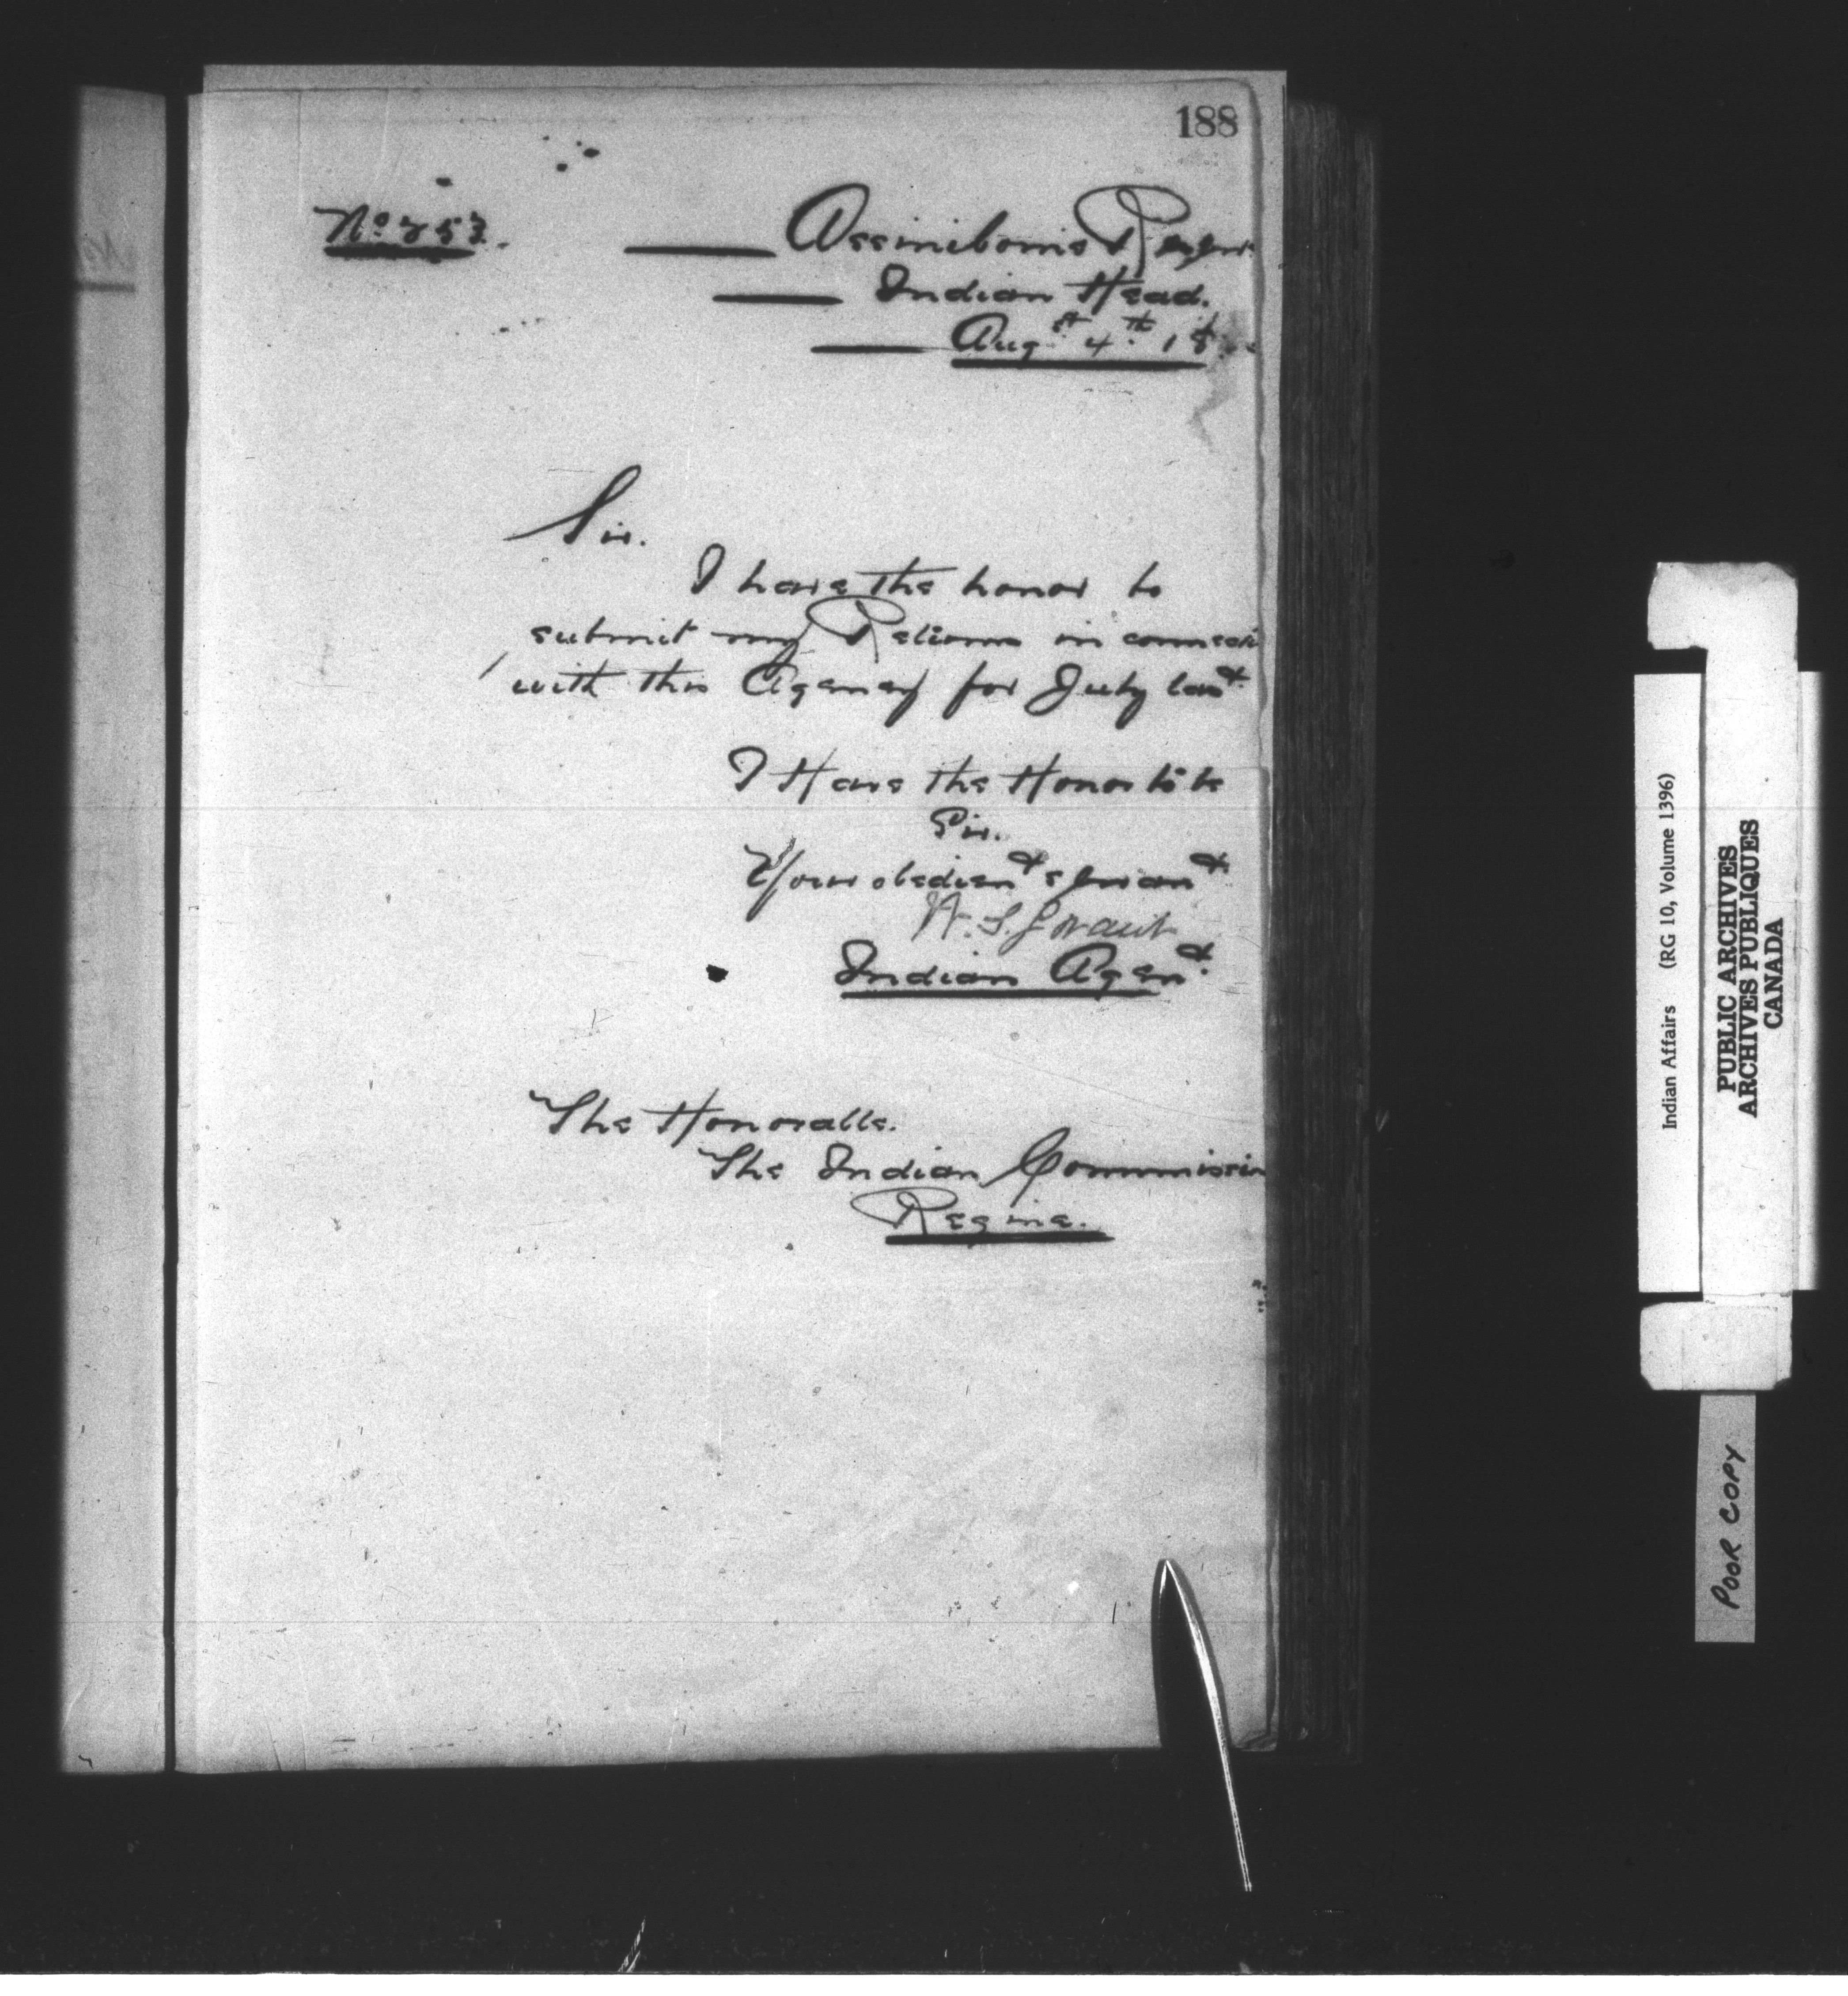 188
No 253.
Assiniboine Reserve
Indian Head.
Augst 4th 18
Sir.
I have the honor to
submit my Returns in connecti
with this Agency for July last
I Have the Honor to be
Sir.
Your obedient servant
W. S. Grant
Indian Agent.
The Honorable.
The Indian Commissin
Regina.
Indian Affairs (RG 10, Volume 1396)
PUBLIC ARCHIVES
ARCHIVES PUBLIQUES
CANADA
POOR COPY